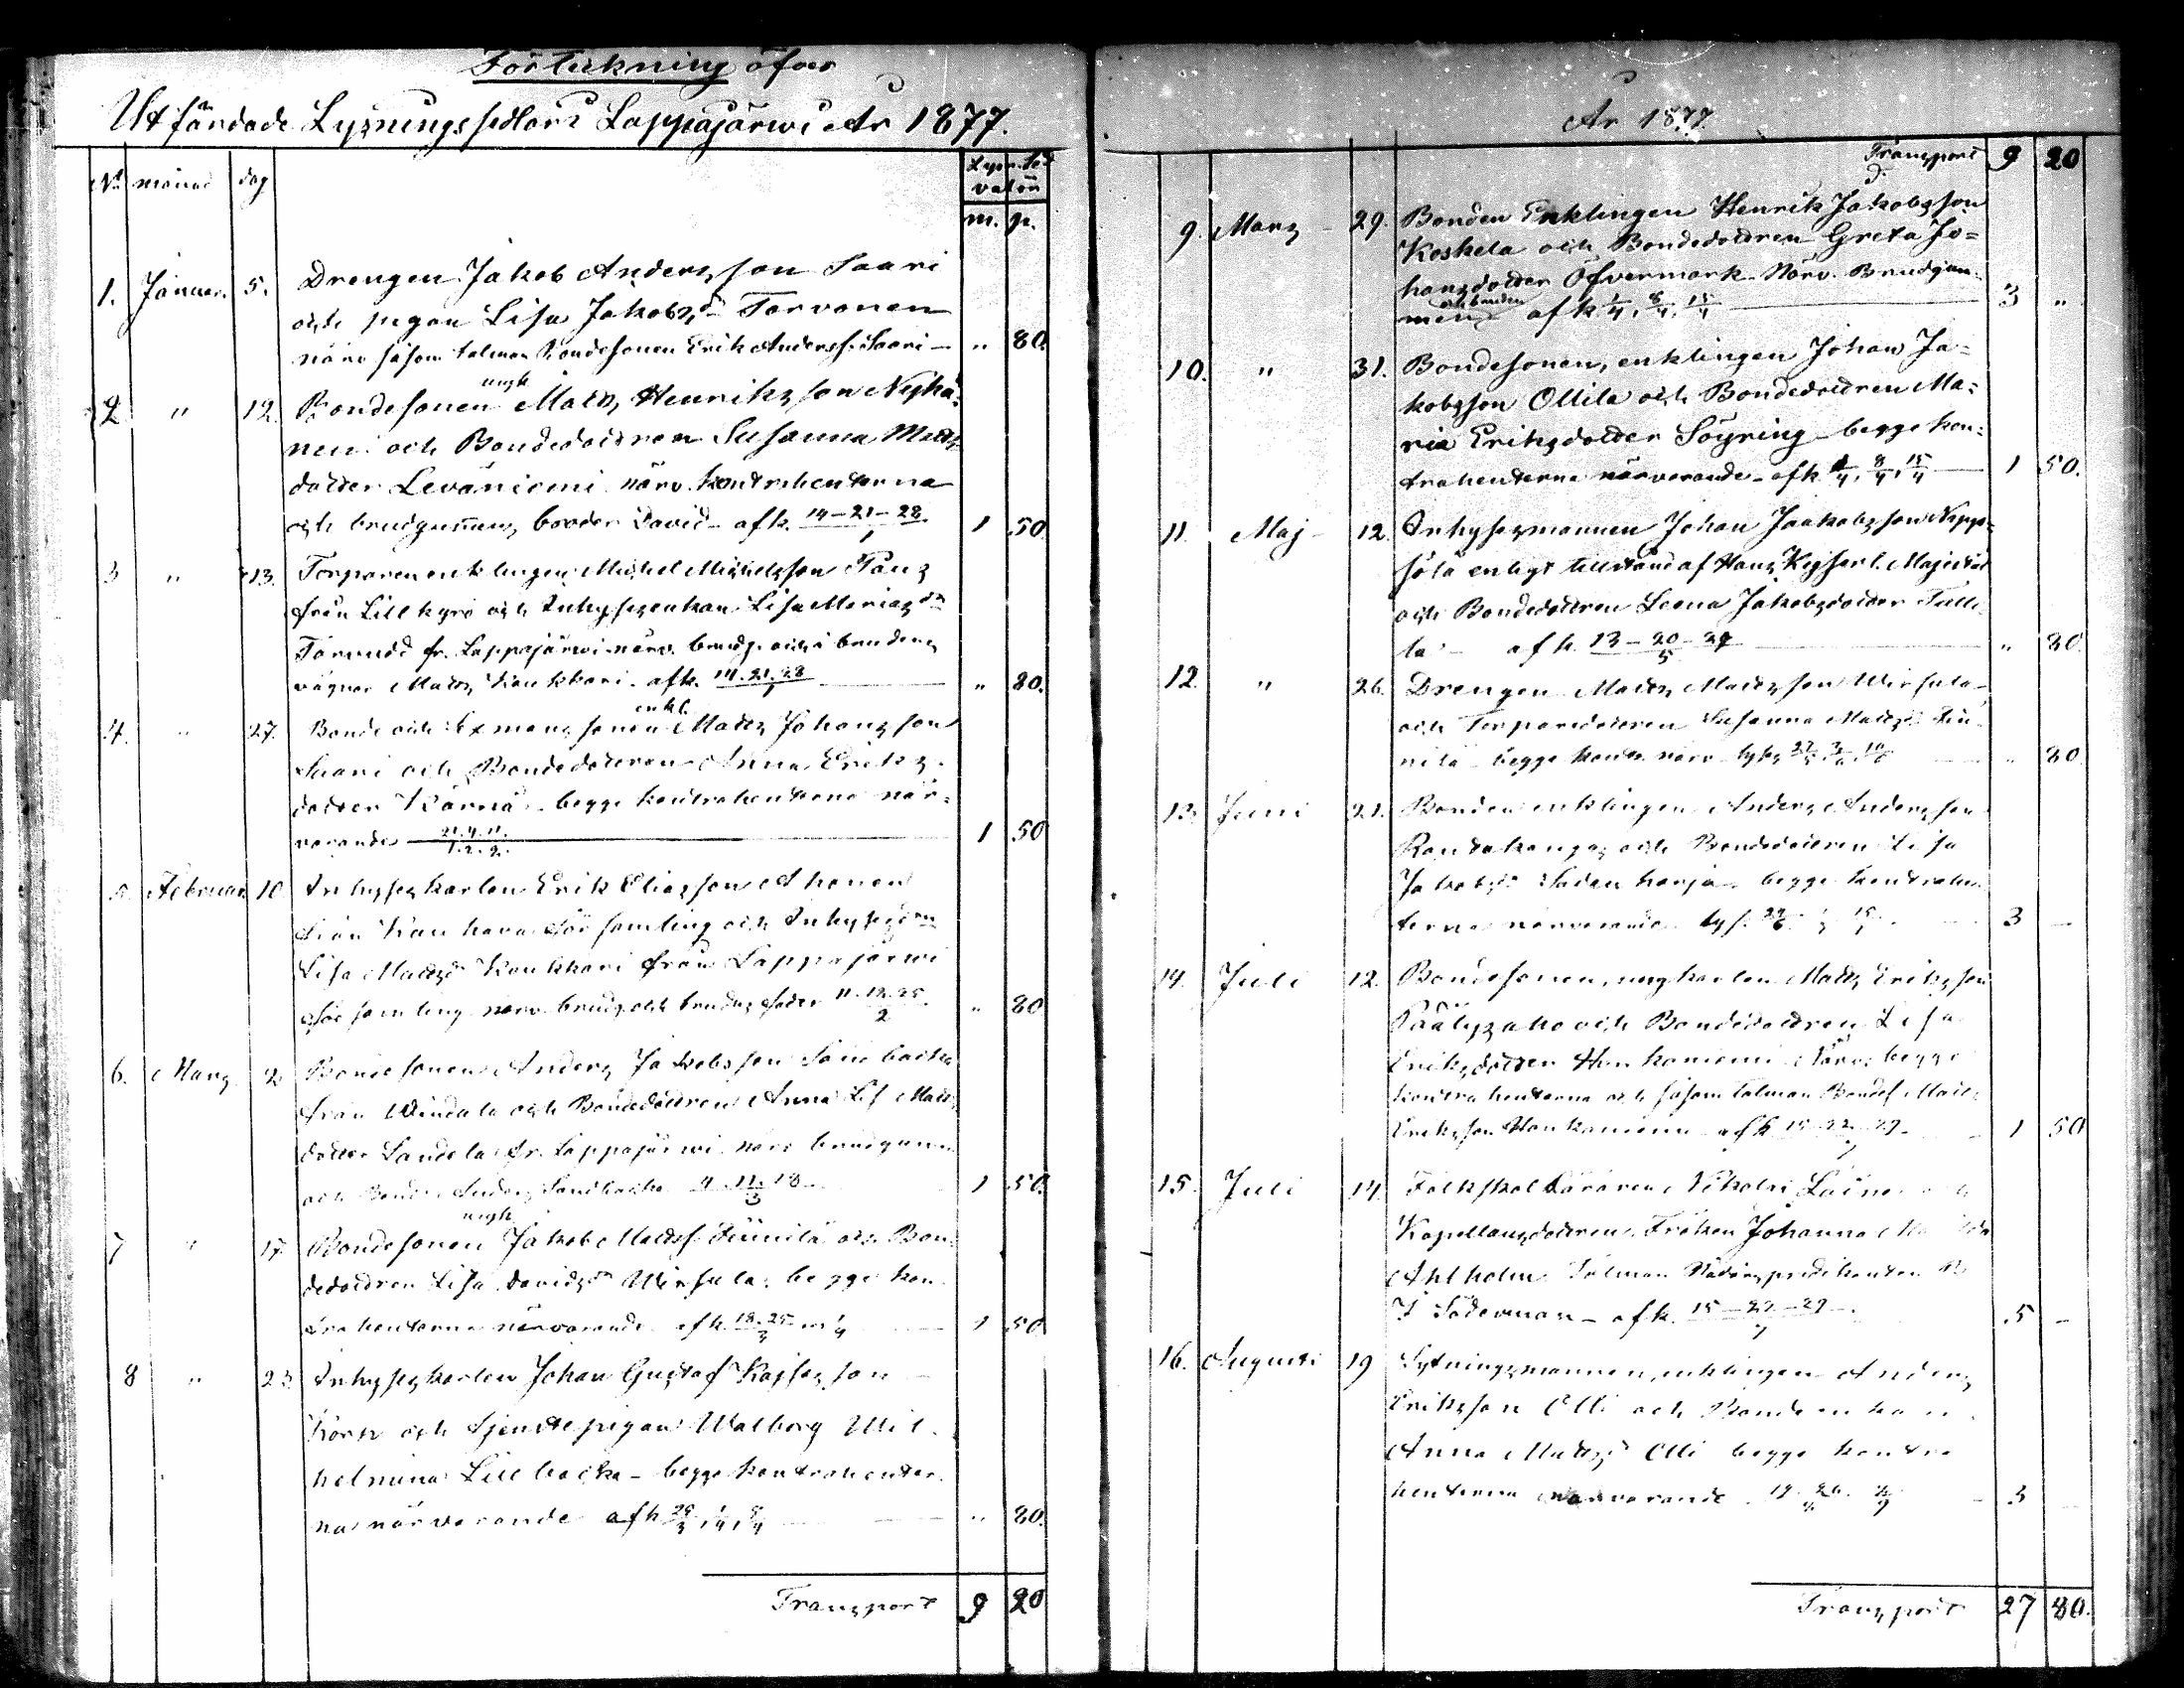 Förteckning öfver
Utfärdade Lysningssedlar i Lappajärwi År 1877.
No månad dag m. p.
1. Januar. 5. Drengen Jakob Andersson Saari
och pigan Lisa Jakobsd. Torvonen
närv såsom talman Bondesonen Erik Anderss. Saari — " 80.
ungk
2. " 12. Bondesonen Matts Henriksson Nykä-
nen och Bondedottren Susanna Matts
dotter Levāniemi närv. kontrahenterna
och brudgummens broder David – afk. 14–21–28/1 1 50
3 " 13. Torparen enklingen Michel Michelsson Pans
från Lillkyro och Inhysesenkan Lisa Mariasdr
fr. Lappajärwi närv. brudg. och i brudens
vägnar Matts Koukkari. afk. 14.21.28/1 " 80.
enkl.
4. " 27. Bonde och Sexmanssonen Matts Johansson
Saari och Bondedottren Anna Eriks-
dotter Kärnä – begge kontrahenterna när-
varande 21.4.11./1.2.2. 1 50
5. Februar. 10 Inhyseskarlen Erik Eliasson Ahonen
från Kauhava församling och Inhysesdrn
Lisa Mattsd. Koukkari från Lappajärwi
församling närv. brudg. och brudens fader 11.18.25/2 " 80
6. Mars 2 Bondesonen Anders Jakobsson Sandbacka
från Windala och Bondedottren Anna Lis Matts
dotter Sandela fr. Lappajärwi närv brudgumm.
och Bonden Anders Sandbacka 4.11.18/3 1 50.
ungk
7 " 17 Bondesonen Jakob Mattss. Finnilä och Bon-
dedottren Lisa Davidsdr Wirsula, begge kon-
trahenterna närvarande afk. 18.25/3 o. 1/4 1 50
8 " 23 Inhyseskarlen Johan Gustaf Kajsasson
Korsu och tjenstepigan Walborg Wil-
helmina Lillbacka – begge kontrahenter-
na närvarande afk 25/3, 1/4, 8/4 " 80.
Transport 9 20
År 1877.
Transport 9 20
9. Mars 29. Bonden Enklingen Henrik Jakobsson
Koskela och Bondedottren Greta Jo-
hansdotter Öfvermark. Närv. Brudgum-
och bruden
men afk. 1/4, 8/4, 15/4 3 "
10. " 31. Bondesonen, enklingen Johan Ja-
kobsson Ollila och Bondedottren Ma-
ria Eriksdotter Söyring begge kon-
trahenterna närvarande – afk. 1/4, 8/4, 15/4 1 50.
11. Maj 12. Inhysesmannen Johan Jaakobsson
enligt tillstånd af Hans Kejserl. Majestät
och Bondedottren Leena Jakobsdotter
afk. 13–20–27/5 " 80.
12. " 26. Drengen Matts Mattsson Wirsula
och Torparedottren Susanna Mattsd. Fin-
nilä – begge kontr. närv. lyses 27/5 3/6 10/6 " 80
13. Juni 21. Bonden enklingen Anders Andersson
Rantakangas och Bondedottren Lisa
Jakobsd. Sadenharja – begge kontrahen-
terna närvarande lys. 24/6 1/7 15/7 3 —
14. Juli 12. Bondesonen, ungkarlen Matts Eriksson
Päälysaho och Bondedottren Lisa
Eriksdotter Honkaniemi. Närv. begge
kontrahenterna och såsom talman Bondes. Matts
Eriksson Honkaniemi – afk 15–22–29/7 1 50
15. Juli 14. Folkskolläraren Nikolai Laine och
Kapellansdottren Fröken Johanna
Ahlholm. Talman Nådårspredikanten
J Söderman – afk. 15–22–29/7 5 —
16. Augusti 19 Sytningsmannen, enklingen Anders
Eriksson Olli och Bondeenkan
Anna Mattsd. Olli begge kontra
henterna närvarande. 19. 26. 2/9 3
Transport 27 80.